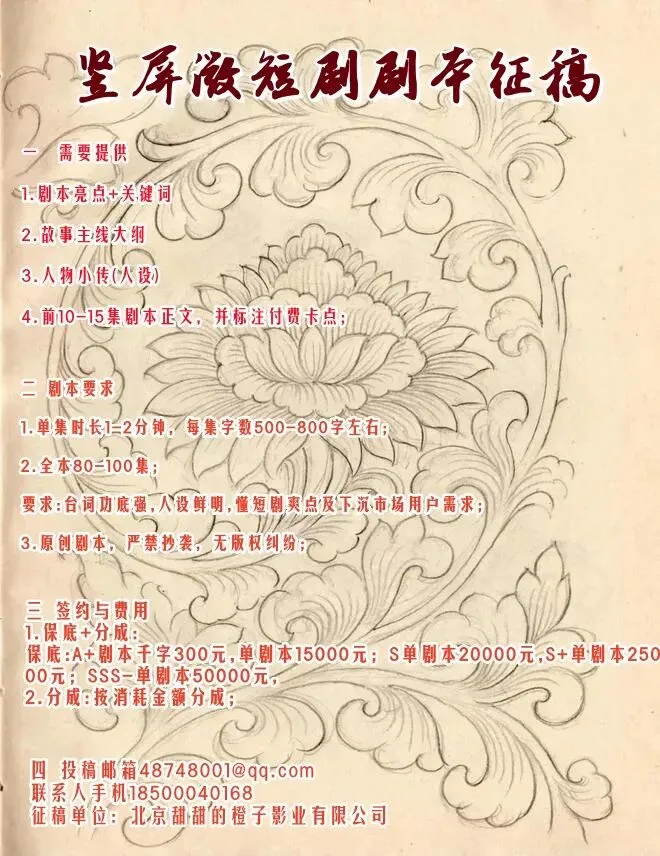 竖屏微短剧剧本征稿
一 需要提供
1.剧本亮点+关键词
2.故事主线大纲
3.人物小传(人设)
4.前10-15集剧本正文，并标注付费卡点；
二 剧本要求
1.单集时长1-2分钟，每集字数500-800字左右；
2.全本80-100集；
要求:台词功底强,人设鲜明,懂短剧爽点及下沉市场用户需求；
3.原创剧本，严禁抄袭，无版权纠纷；
三 签约与费用
1.保底+分成:
保底:A+剧本千字300元,单剧本15000元；S单剧本20000元,S+单剧本250
00元；SSS-单剧本50000元,
2.分成:按消耗金额分成；
四 投稿邮箱48748001@qq.com
联系人手机18500040168
征稿单位：北京甜甜的橙子影业有限公司